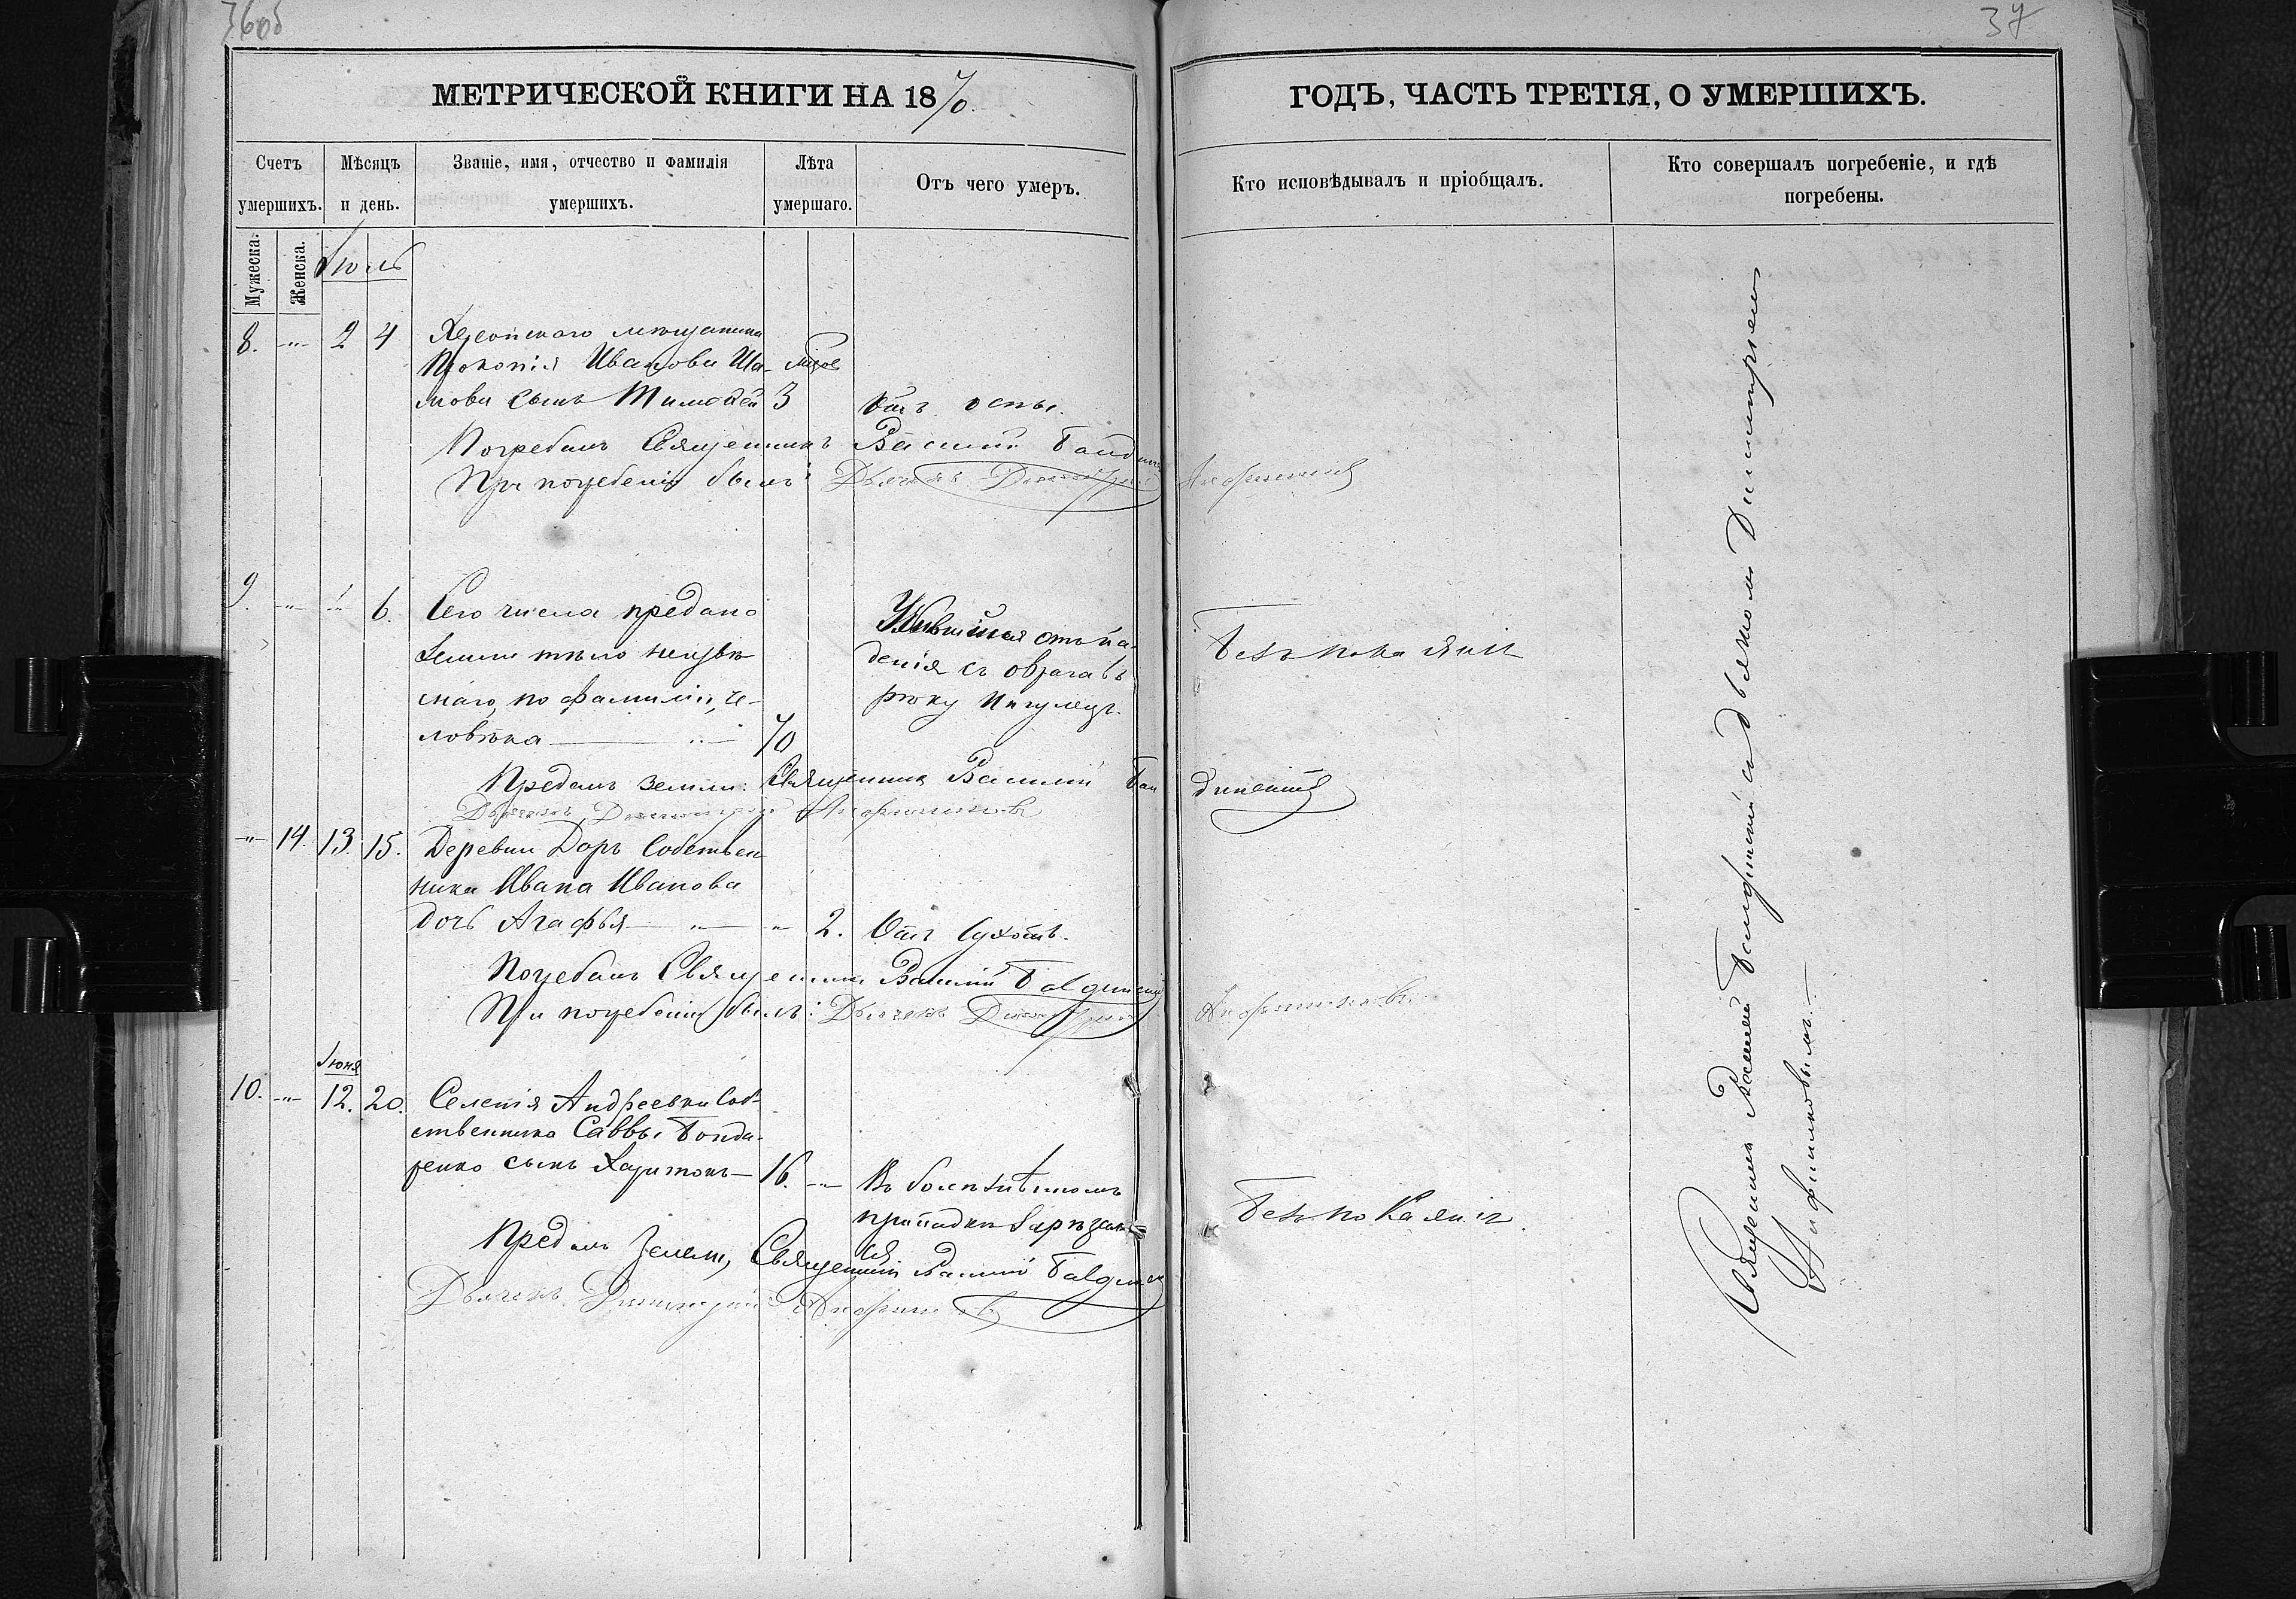 36об
37
МЕТРИЧЕСКОЙ КНИГИ НА 1870
ГОДЪ, ЧАСТЬ ТРЕТІЯ, О УМЕРШИХЪ.
Счетъ умершихъ.
Мѣсяцъ и день.
Званіе, имя, отчество и фамилія умершихъ.
Лѣта умершаго.
Отъ чего умеръ.
Кто исповѣдывалъ и пріобщалъ.
Кто совершалъ погребеніе, и гдѣ погребены.
Мужеска.
Женска.
Іюль
8. -"- 2 4 Херсонскаго мѣщанина
Прокопія Иванова Ша-
мова сынъ Тимофей 3 Отъ оспы.
Погребалъ Священникъ Василій
При погребеніи былъ: Дьячекъ Димитрій Анфиликовъ
9. -"- 6. Сего числа предано
земли тѣло неизвѣ-
снаго, по фамиліи, че-
ловѣка 70
Убившійся отъ па-
денія съ оврага въ
рѣку Ингулецъ.
Безъ покаянія
Предалъ земли: Священникъ Василій
Дьячекъ Димитрій Анфиликовъ
-"- 14. 13. 15. Деревни Доръ Собствен-
ника Ивана Иванова
дочь Агафья -"- -"- 2. Отъ сухотъ.
Погребалъ Священникъ Василій
При погребеніи былъ: Дьячекъ Димитрій Анфиликовъ
Іюня
10. -"- 12. 20. Селенія Андреевки Соб-
ственника Саввы Бонда-
ренко сынъ Харитонъ 16. -"- Въ болѣзненномъ
припадкѣ зарѣзал-
ся
Безъ покаянія.
Предалъ земли, Священникъ Василій
Дьячекъ Димитрій Анфиликовъ
Священникъ Василій съ дьячкомъ Димитріемъ
Анфиликовымъ.